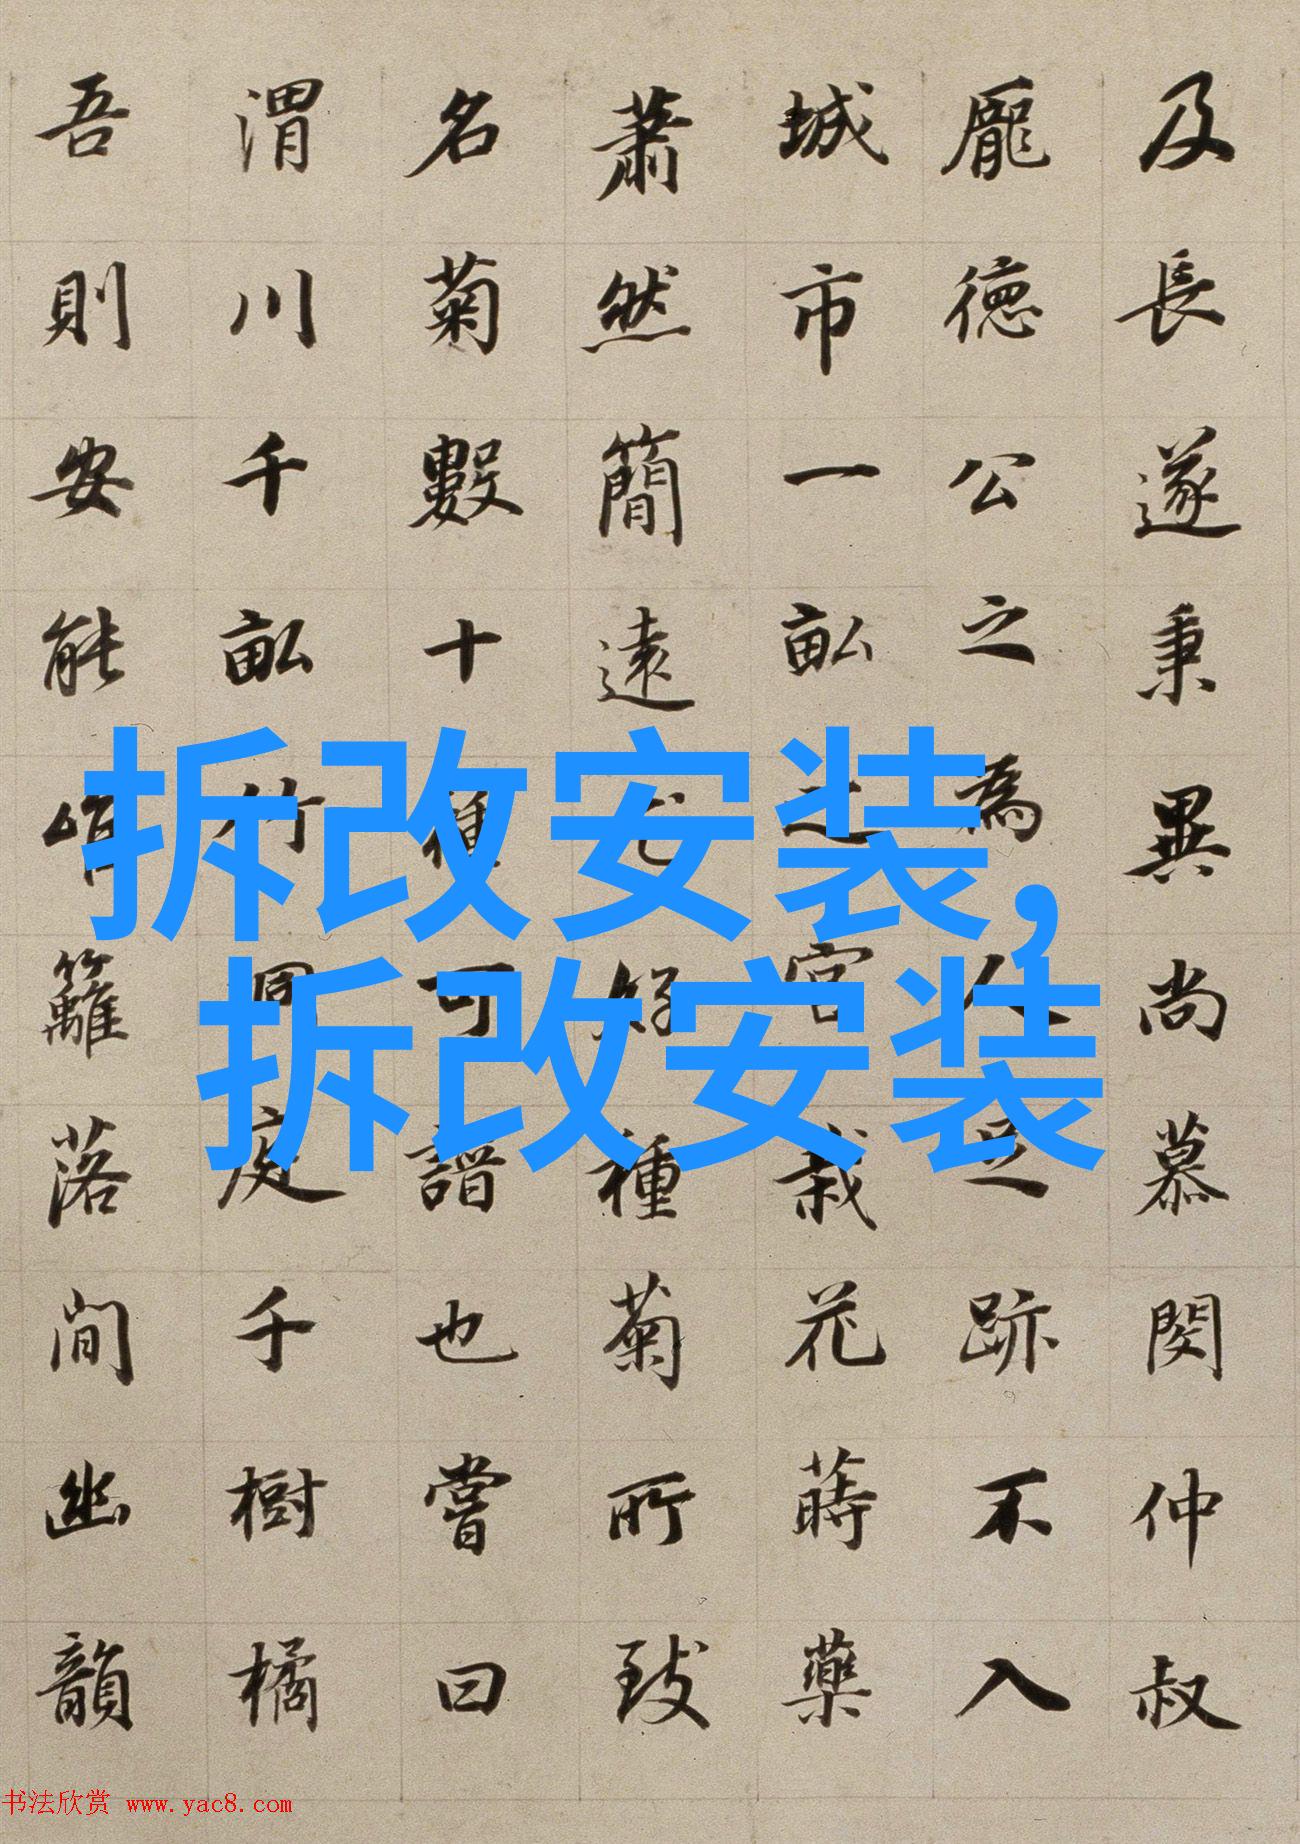 及長遂秉異尚慕閔仲叔
龐德公之為人足跡不入
城市一畝之宮栽花蒔藥
蕭然簡遠尤好種菊所致
名菊數十種可譜也嘗曰
渭川千畝竹洞庭千樹橘
吾則安能當籬落間幽韻
拆改安装,
拆改安装
书法欣赏 www.yac8.com